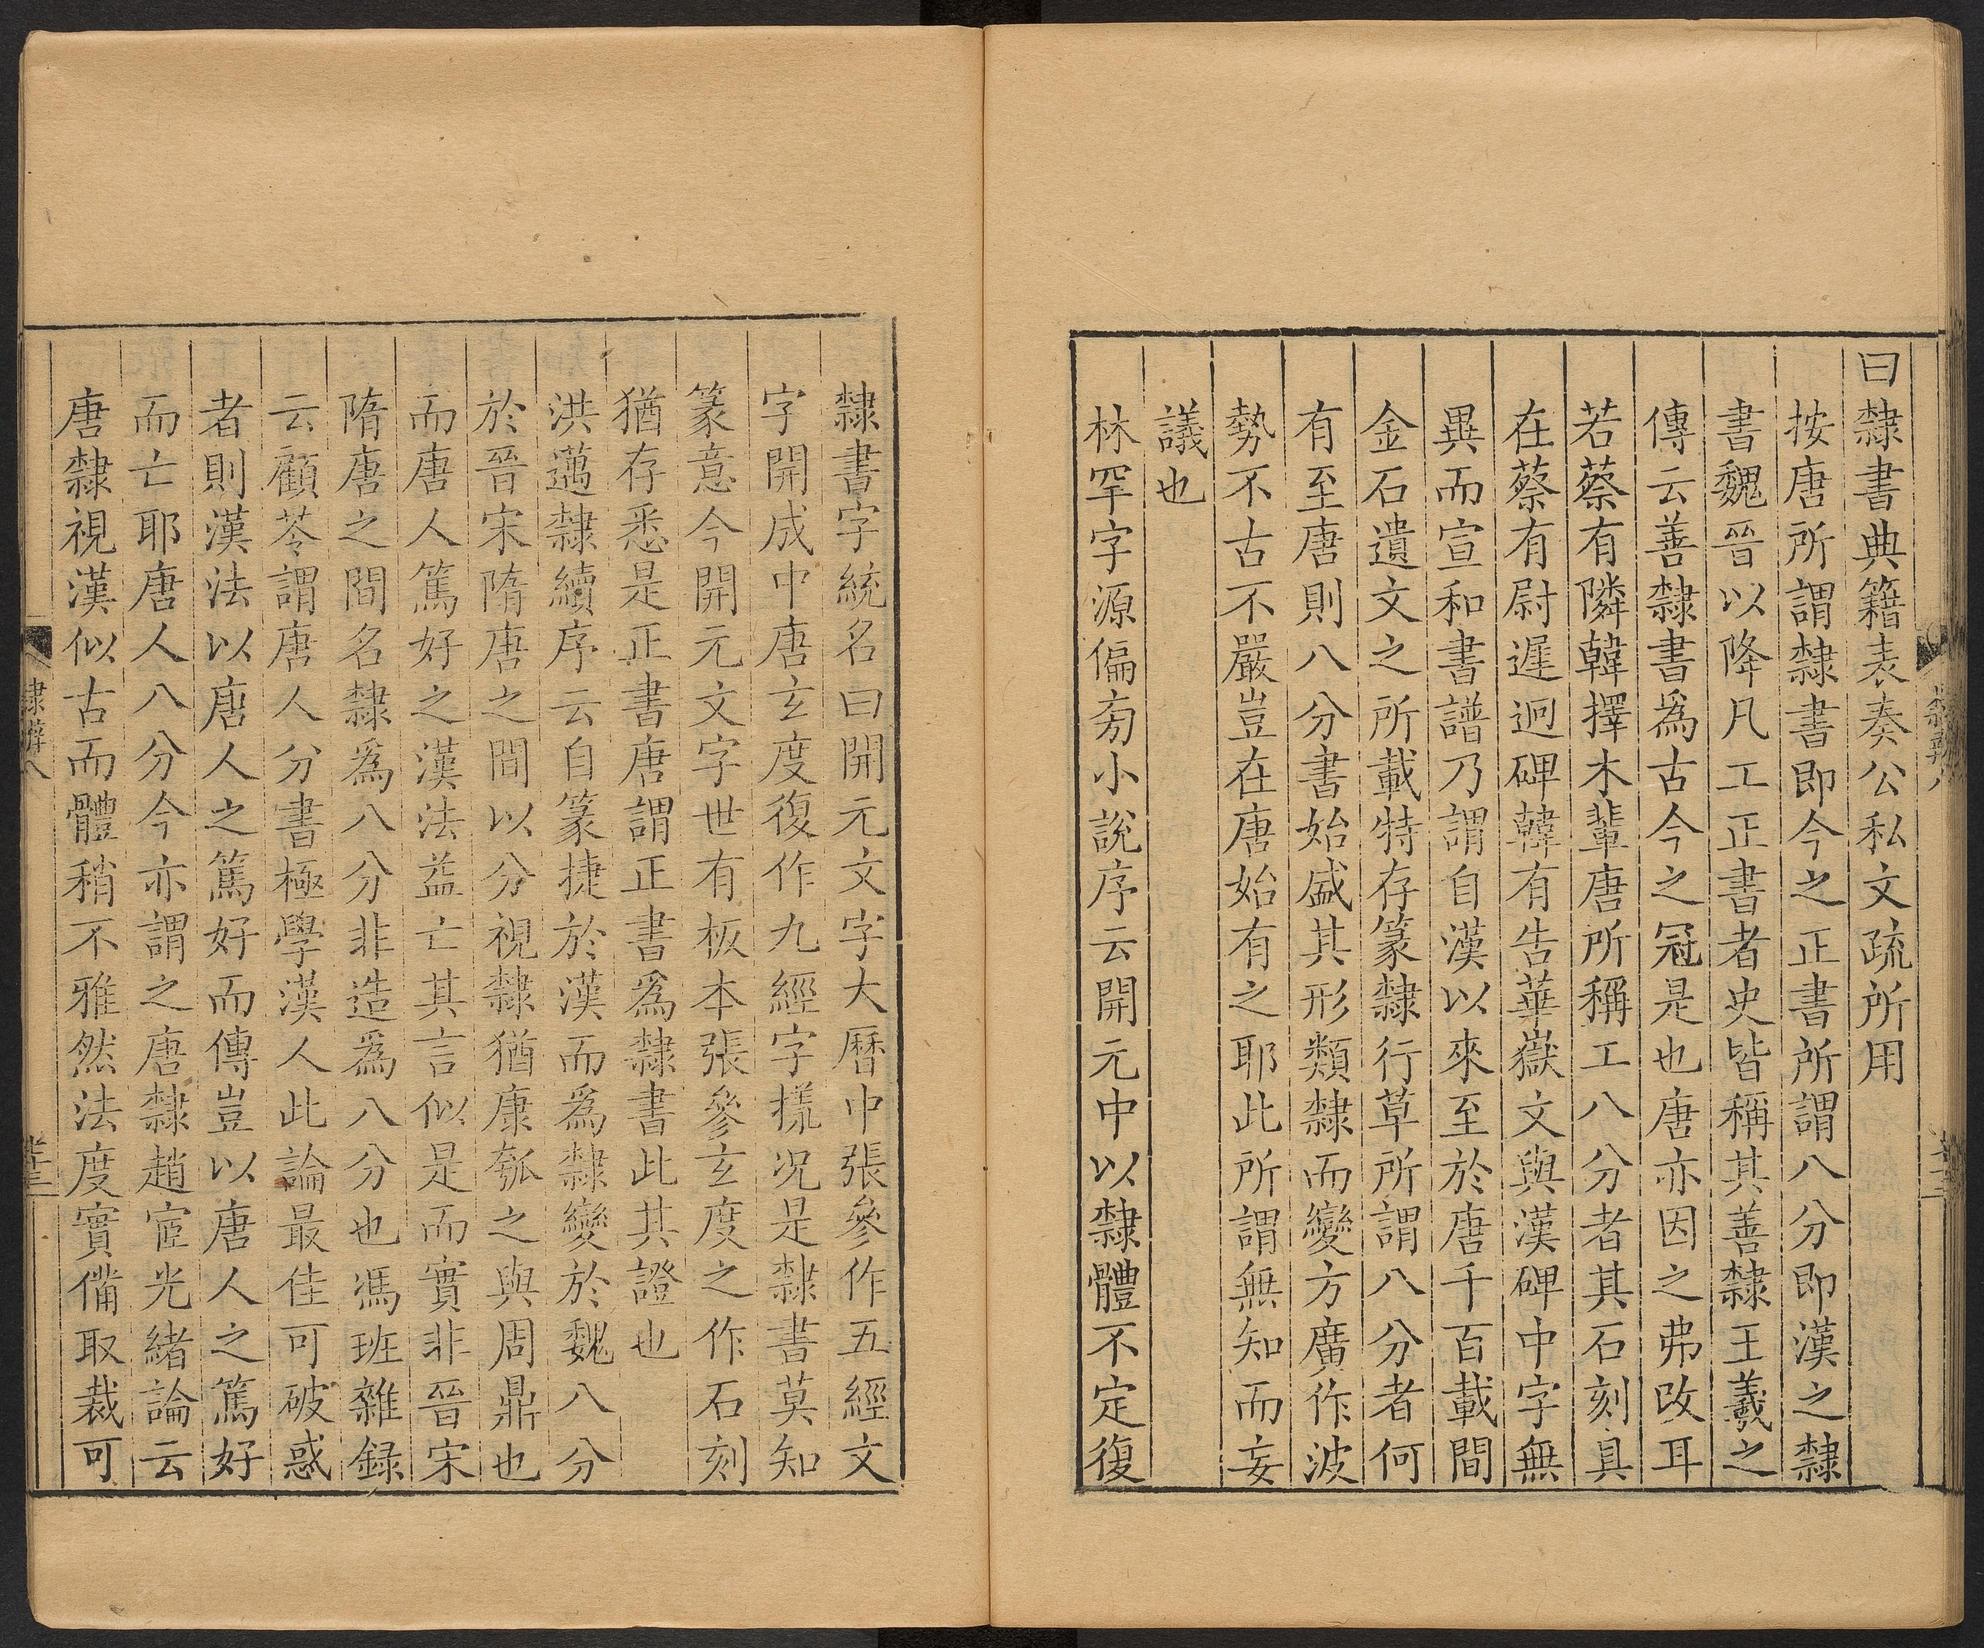 曰隸書典籍表奏公私文疏所用
按唐所謂隸書即今之正書所謂八分即漢之隸
書魏晉以降凡工正書者史皆稱其善隸王羲之
傳云善隸書爲古今之冠是也唐亦因之弗改耳
若蔡有隣韓擇木輩唐所稱工八分者其石刻具
在蔡有尉遲迥碑韓有告華嶽文與漢碑中字無
異而宣和書譜乃謂自漢以來至於唐千百載間
金石遺文之所載特存篆隸行草所謂八分者何
有至唐則八分書始盛其形類隸而變方廣作波
勢不古不嚴豈在唐始有之耶此所謂無知而妄
議也
林罕字源偏旁小說序云開元中以隸體不定復
隸書字統名曰開元文字大曆中張參作五經文
字開成中唐玄度復作九經字㨾況是隸書莫知
篆意今開元文字世有板本張參玄度之作石刻
猶存悉是正書唐謂正書爲隸書此其證也
洪邁隸續序云自篆捷於漢而爲隸變於魏八分
於晉宋隋唐之間以分視隸猶康瓠之與周鼎也
而唐人篤好之漢法益亡其言似是而實非晉宋
隋唐之間名隸爲八分非造爲八分也馮班雜録
云顧苓謂唐人分書極學漢人此論最佳可破惑
者則漢法以唐人之篤好而傳豈以唐人之篤好
而亡耶唐人八分今亦謂之唐隸趙宧光緒論云
唐隸視漢似古而體稍不雅然法度實備取裁可
隸辨八